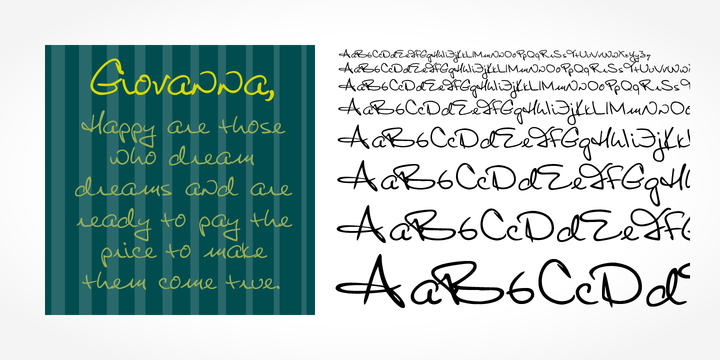 Giovanna,
Happy are those
who dream
dreams and are
ready to pay the
price to make
them come true.
AaBbCcDdEeFfGgHhIiJjKkLlMmNnOoPpQqRrSsTtUuVvWwXxYyZz
AaBbCcDdEeFfGgHhIiJjKkLlMmNnOoPpQqRrSsTtUuVvWwXx
AaBbCcDdEeFfGgHhIiJjKkLlMmNnOoPpQqRrSs
AaBbCcDdEeFfGgHhIiJjKkLlMmNnOo
AaBbCcDdEeFfGgHhIiJjKk
AaBbCcDdEeFfGgH
AaBbCcDdEeFfG
AaBbCcDd